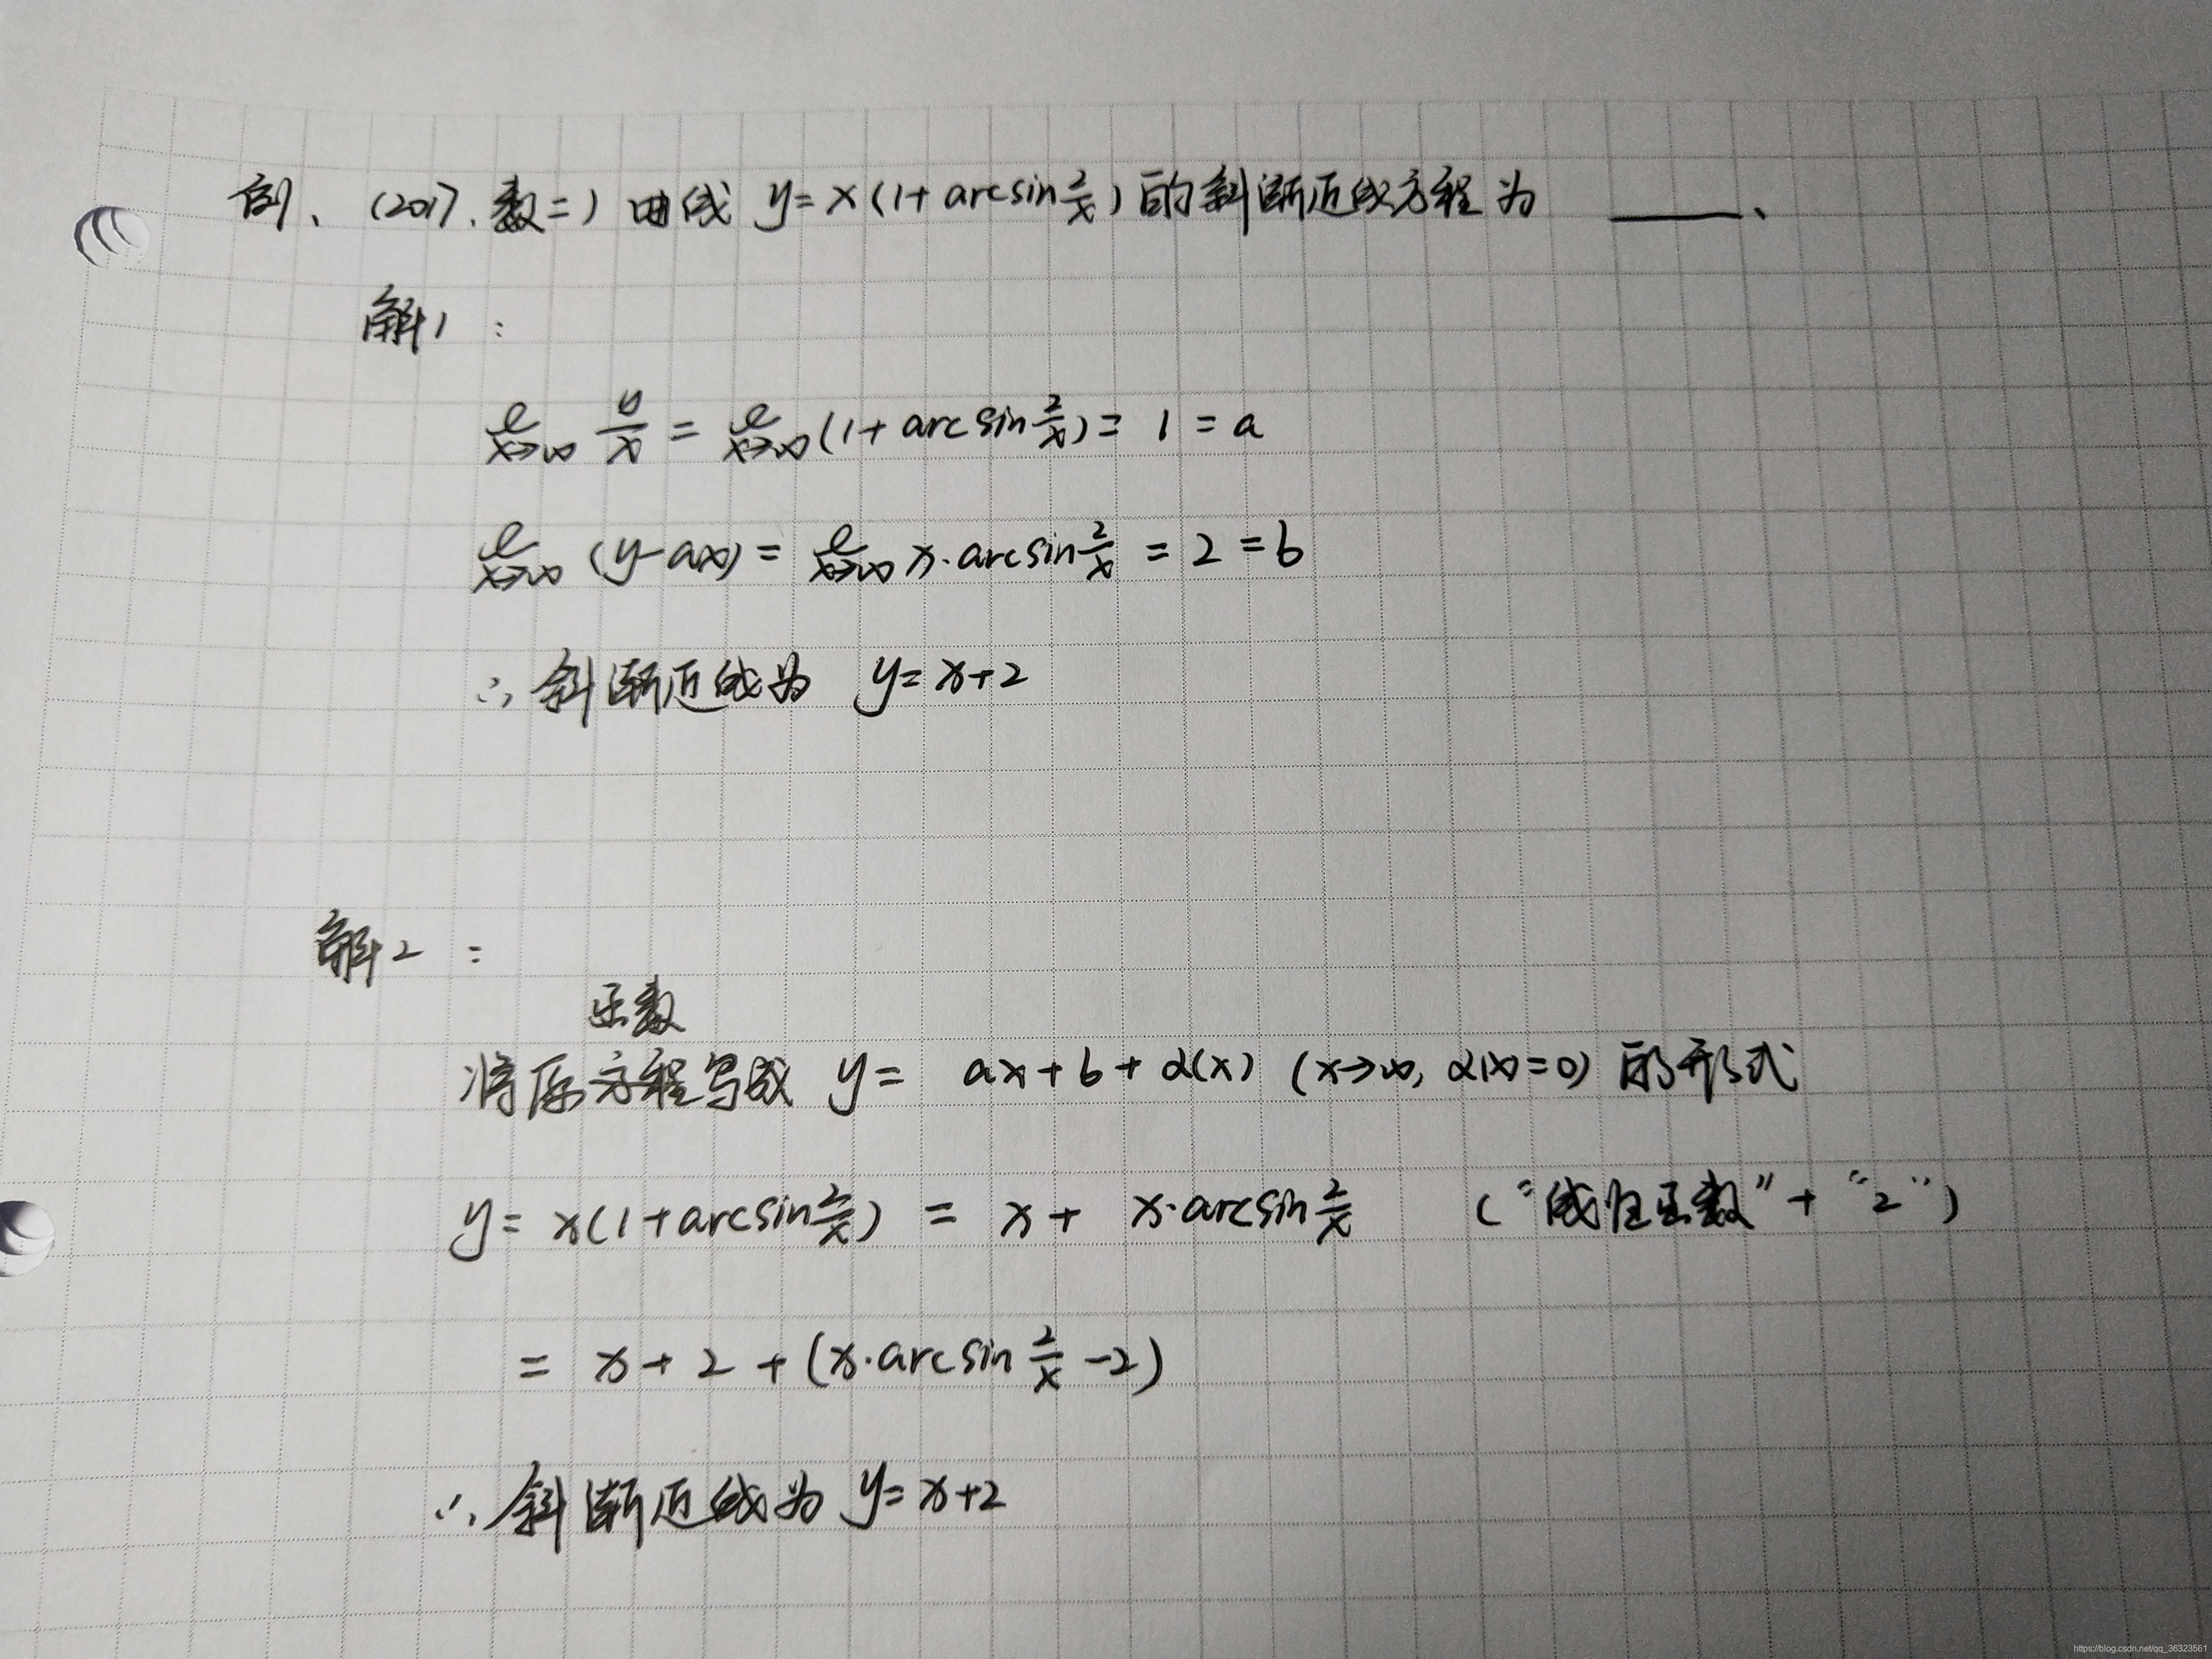 例、(2017.数二) 曲线 y=x(1+arcsin 2/x) 的斜渐近线方程为 ____、
解1：
lim x→∞ y/x = lim x→∞ (1+arcsin 2/x) = 1 = a
lim x→∞ (y-ax) = lim x→∞ x·arcsin 2/x = 2 = b
∴ 斜渐近线为 y=x+2
解2：
函数
将原方程写成 y= ax+b+α(x) (x→∞, α(x)=0) 的形式
y= x(1+arcsin 2/x) = x+ x·arcsin 2/x ("线性函数"+"2")
= x+2+(x·arcsin 2/x -2)
∴ 斜渐近线为 y=x+2
https://blog.csdn.net/qq_36323561